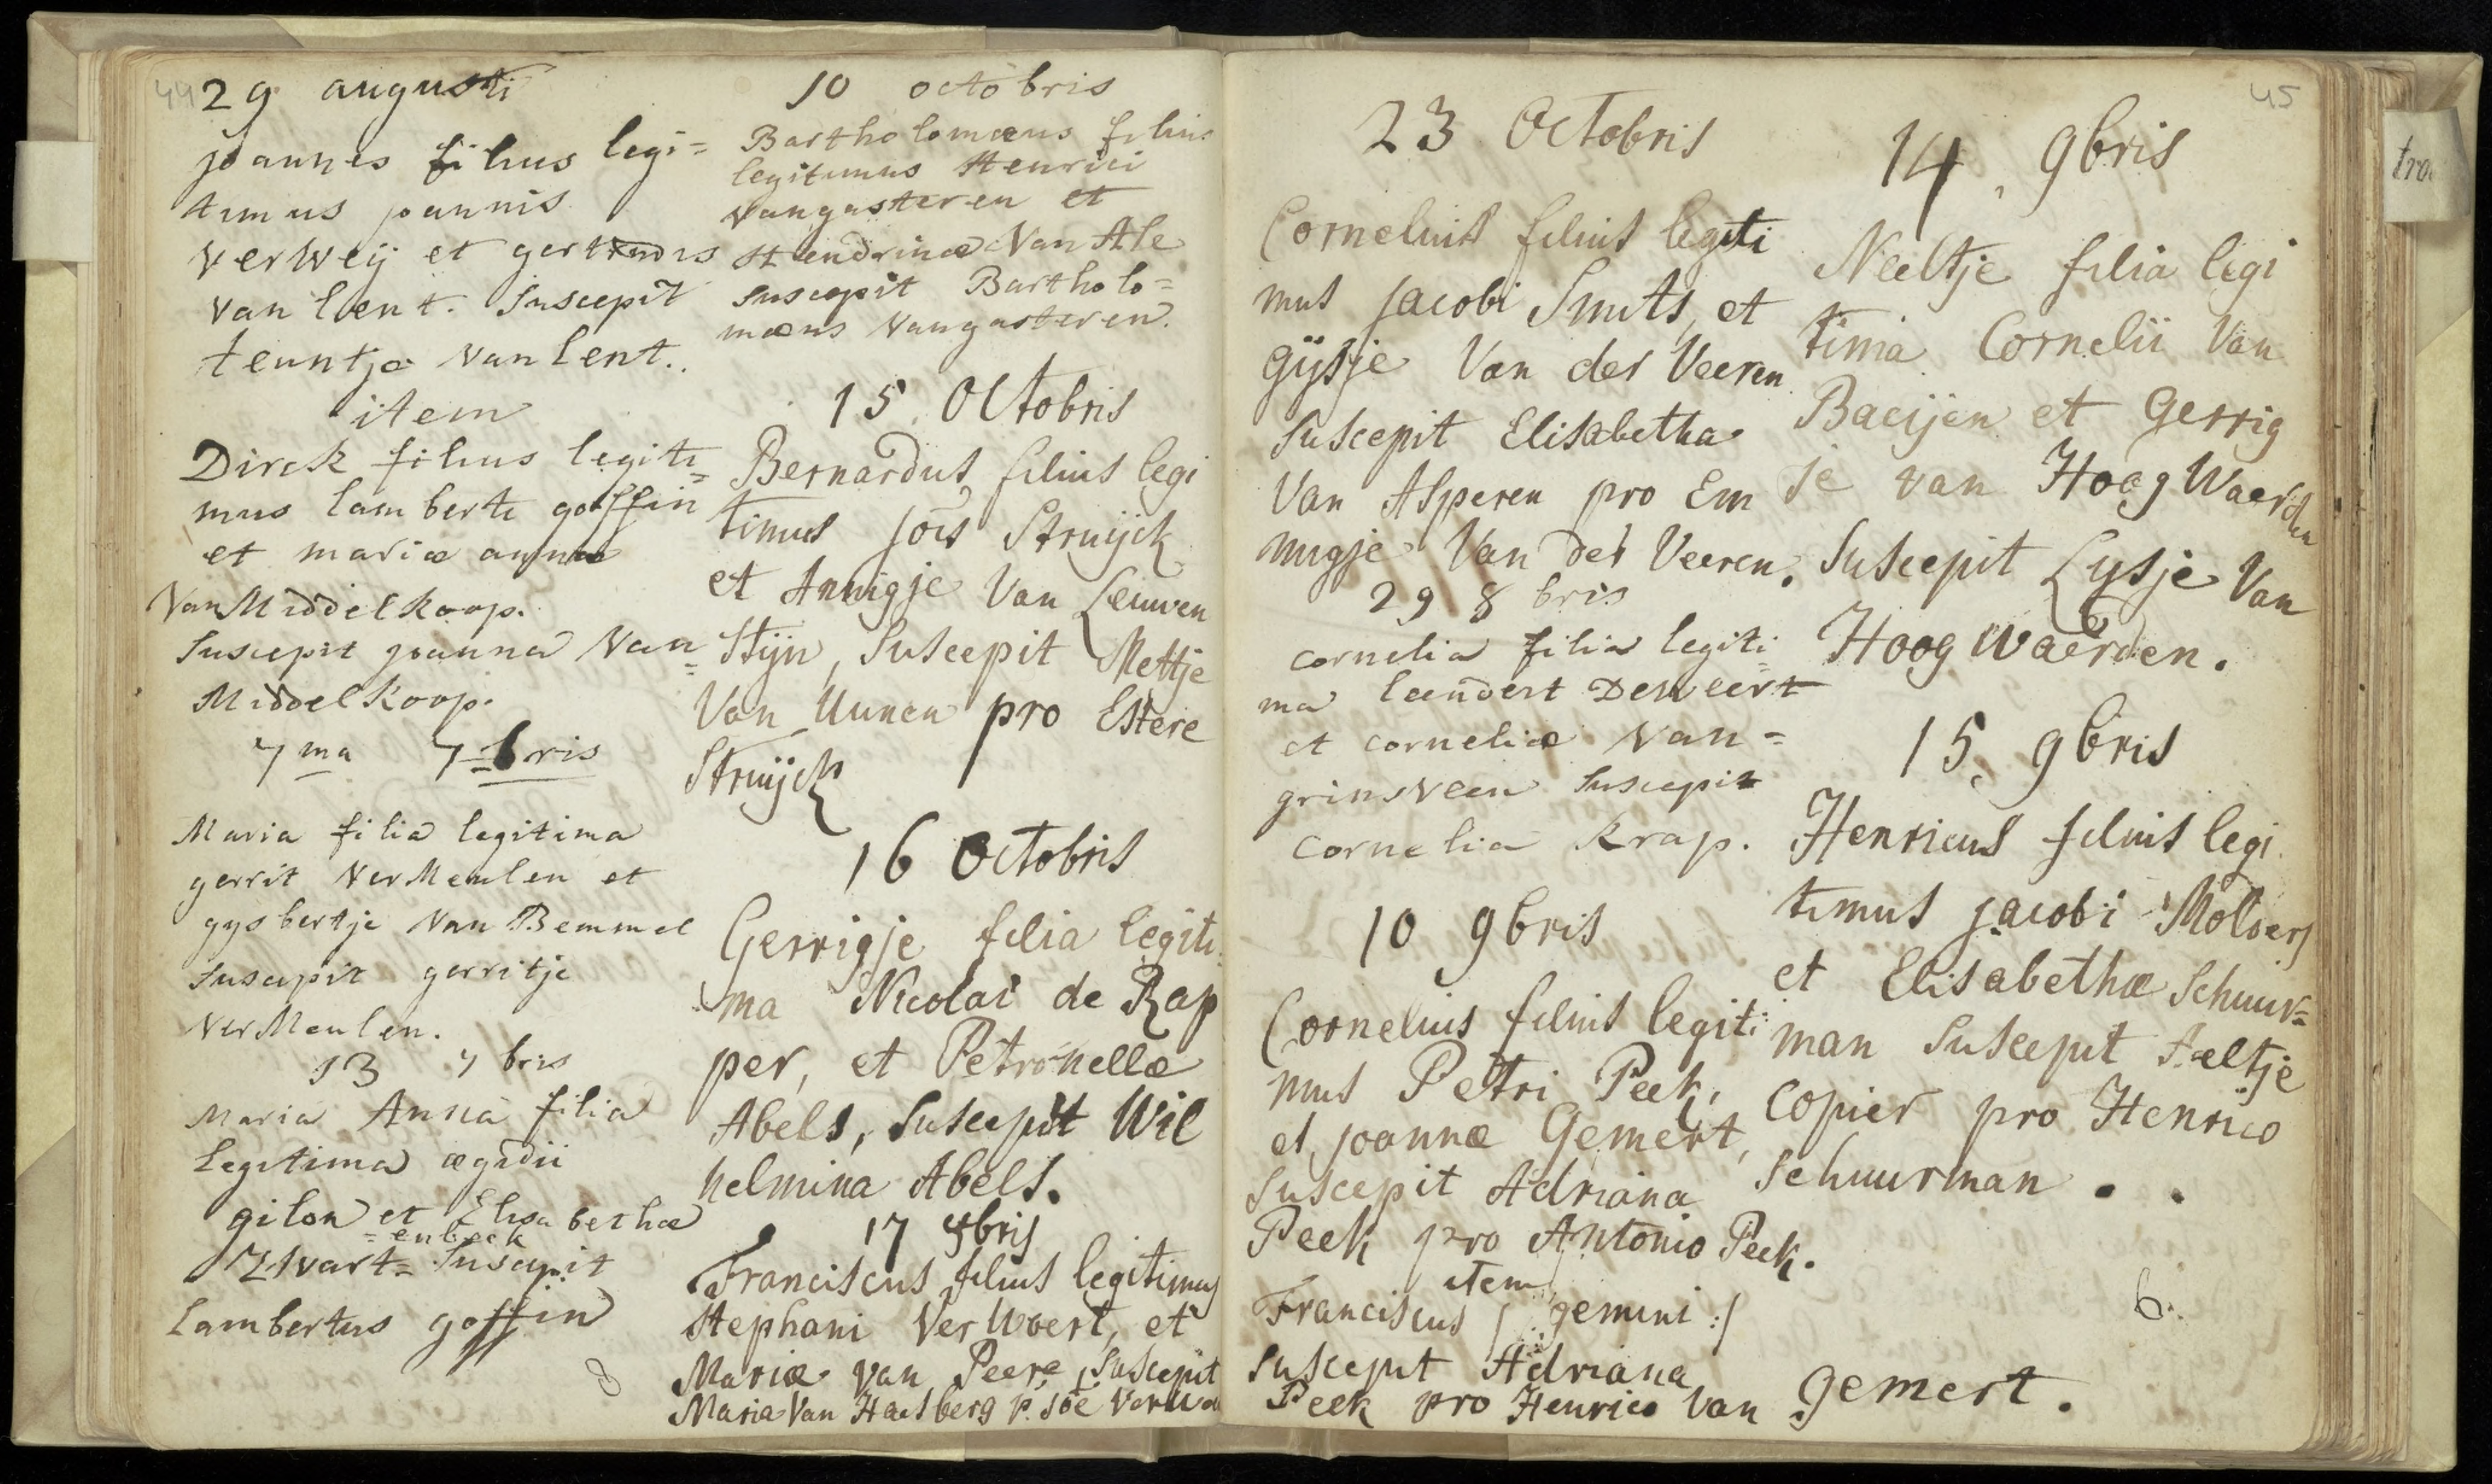 44
29 augusti
joannes filius legi=
timus joannis
verweÿ et gertrudis
van lent. Suscepit
teuntje van lent..
item
Dirck filius legiti=
mus lamberti goffin
et mariæ annæ
Van Middelkoop.
Suscepit joanna Van=
Middelkoop.
7 ma 7 bris
Maria filia legitima
gerrit VerMeulen et
gysbertje Van Bemmel
Suscepit gerritje
VerMeulen.
13 7 bris
Maria Anna filia
Legitima ægidii
gilon et Elisabethæ
=enbeek
Zwart= Suscepit
Lambertus goffin
8
10 octobris
Bartholomæus filius
legitimus Henrici
Vangasteren et
Hendrinæ Van Ale
Suscepit Bartholo=
mæus Vangasteren.
15 Octobris
Bernardus filius legi
timus Jois Struijck
et Annigje Van Leeuwen
Stijn, Suscepit Mettje
Van Uunen pro Estere
Struijck
16 Octobris
Gerrigje filia legiti
ma Nicolai de Rap
per, et Petronellæ
Abels, Suscepit Wil
helmina Abels.
17 8bris
Franciscus filius legitimus
Stephani VerWoert, et
Mariæ Van Peere, Suscepit
Maria Van Haesberg p. Joe
45
23 Octobris
Cornelius filius legiti
mus Jacobi Smits, et
gijsje Van der Veeren
Suscepit Elisabetha
Van Asperen pro Em
migje Van der Veeren.
29 8 bris
cornelia filia legiti=
ma leendert Deweert
et corneliæ Van=
grinsveen Suscepit
cornelia Krap.
10 9bris
Cornelius filius legiti:
mus Petri Peek,
et joannæ Gemert,
Suscepit Adriana
Peek pro Antonio Peek.
item
Franciscus /: gemini :/
Suscepit Adriana
Peek pro Henrico Van Gemert.
14, 9bris
Neeltje filia legi
tima Cornelii Van
Baeijen et Gerrig
je van Hoog Waerden
Suscepit Lysje Van
Hoog Waerden.
15, 9bris
Henricus filius legi
timus jacobi Molders
et Elisabethæ Schuur=
man Suscepit Aeltje
Copier pro Henrico
Schuurman . .
6.
tra